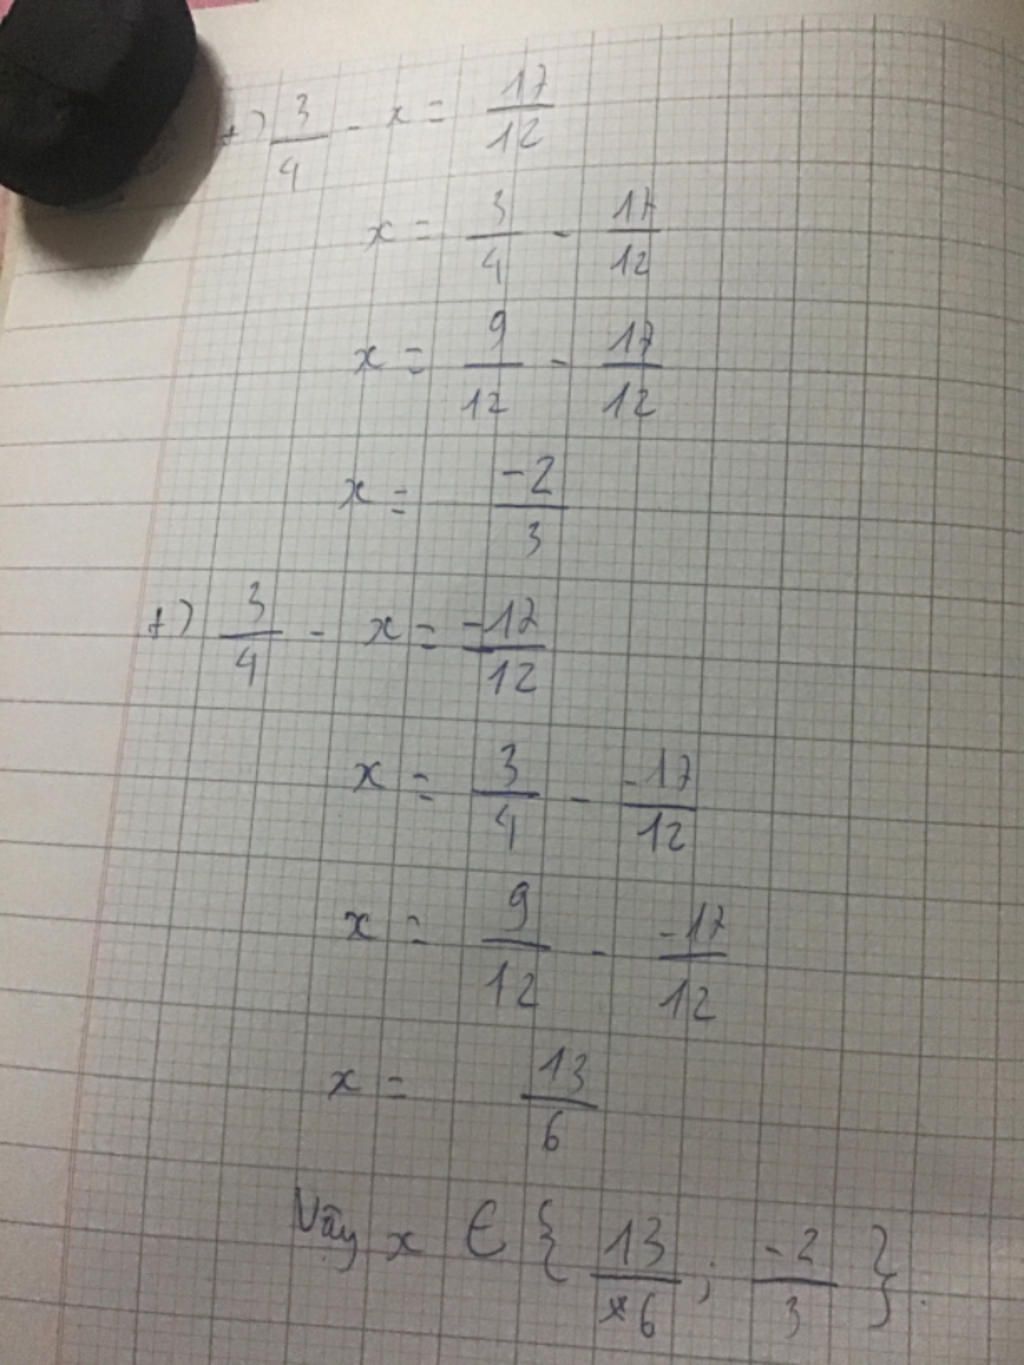 +) 3/4 - x = 17/12
x = 3/4 - 17/12
x = 9/12 - 17/12
x = -2/3
+) 3/4 - x = -17/12
x = 3/4 - -17/12
x = 9/12 - -17/12
x = 13/6
Vậy x ∈ { 13/6 ; -2/3 }.